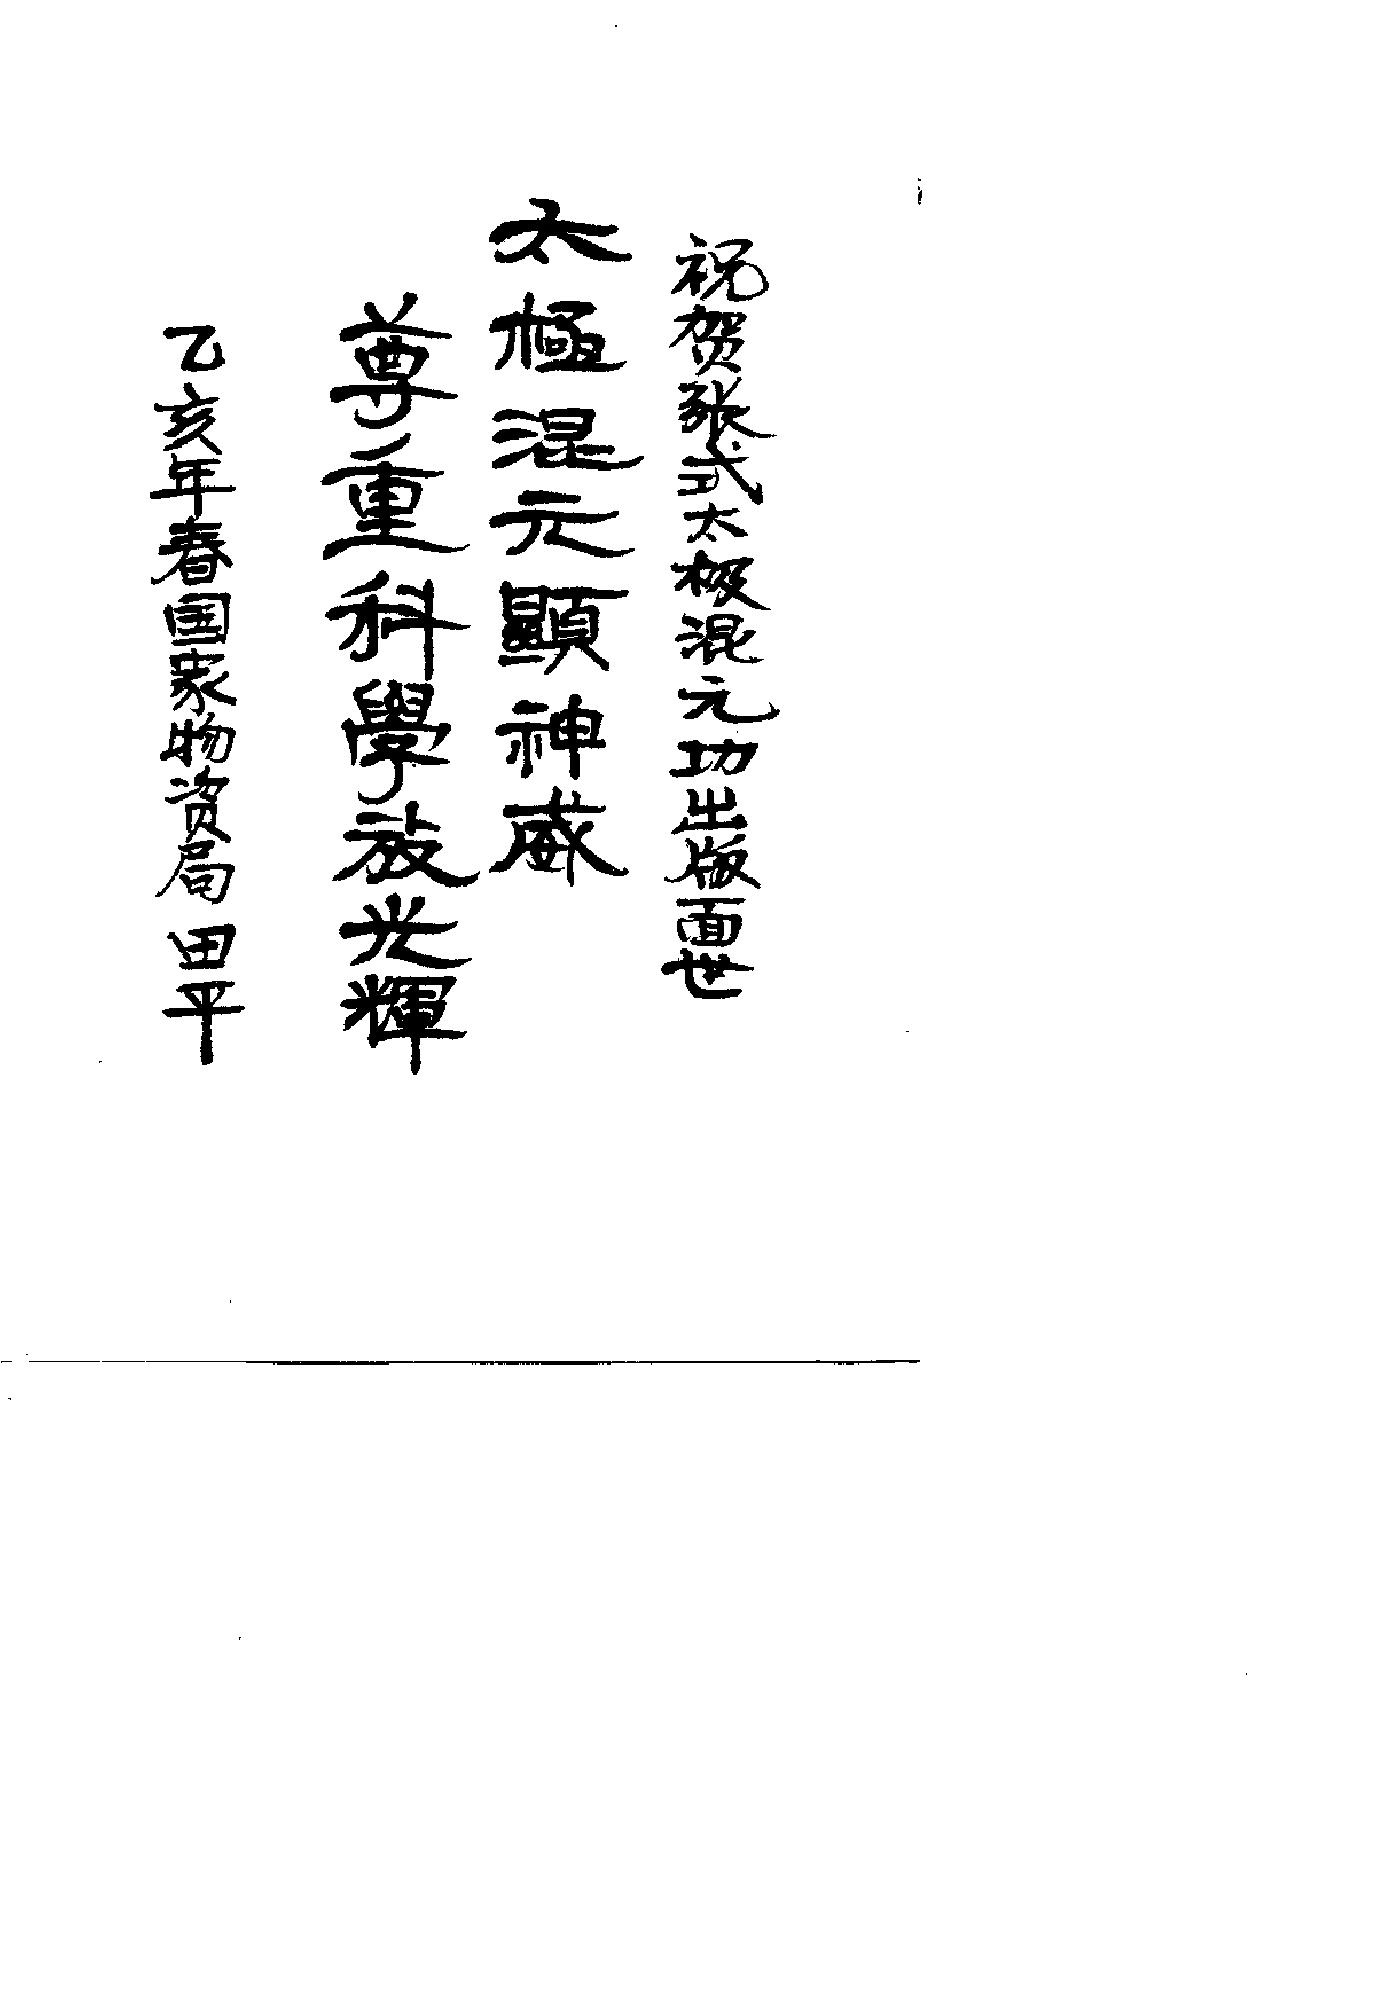 祝贺张式太极混元功出版面世
太極混元顯神威
尊重科學放光輝
乙亥年春国家物资局 田平